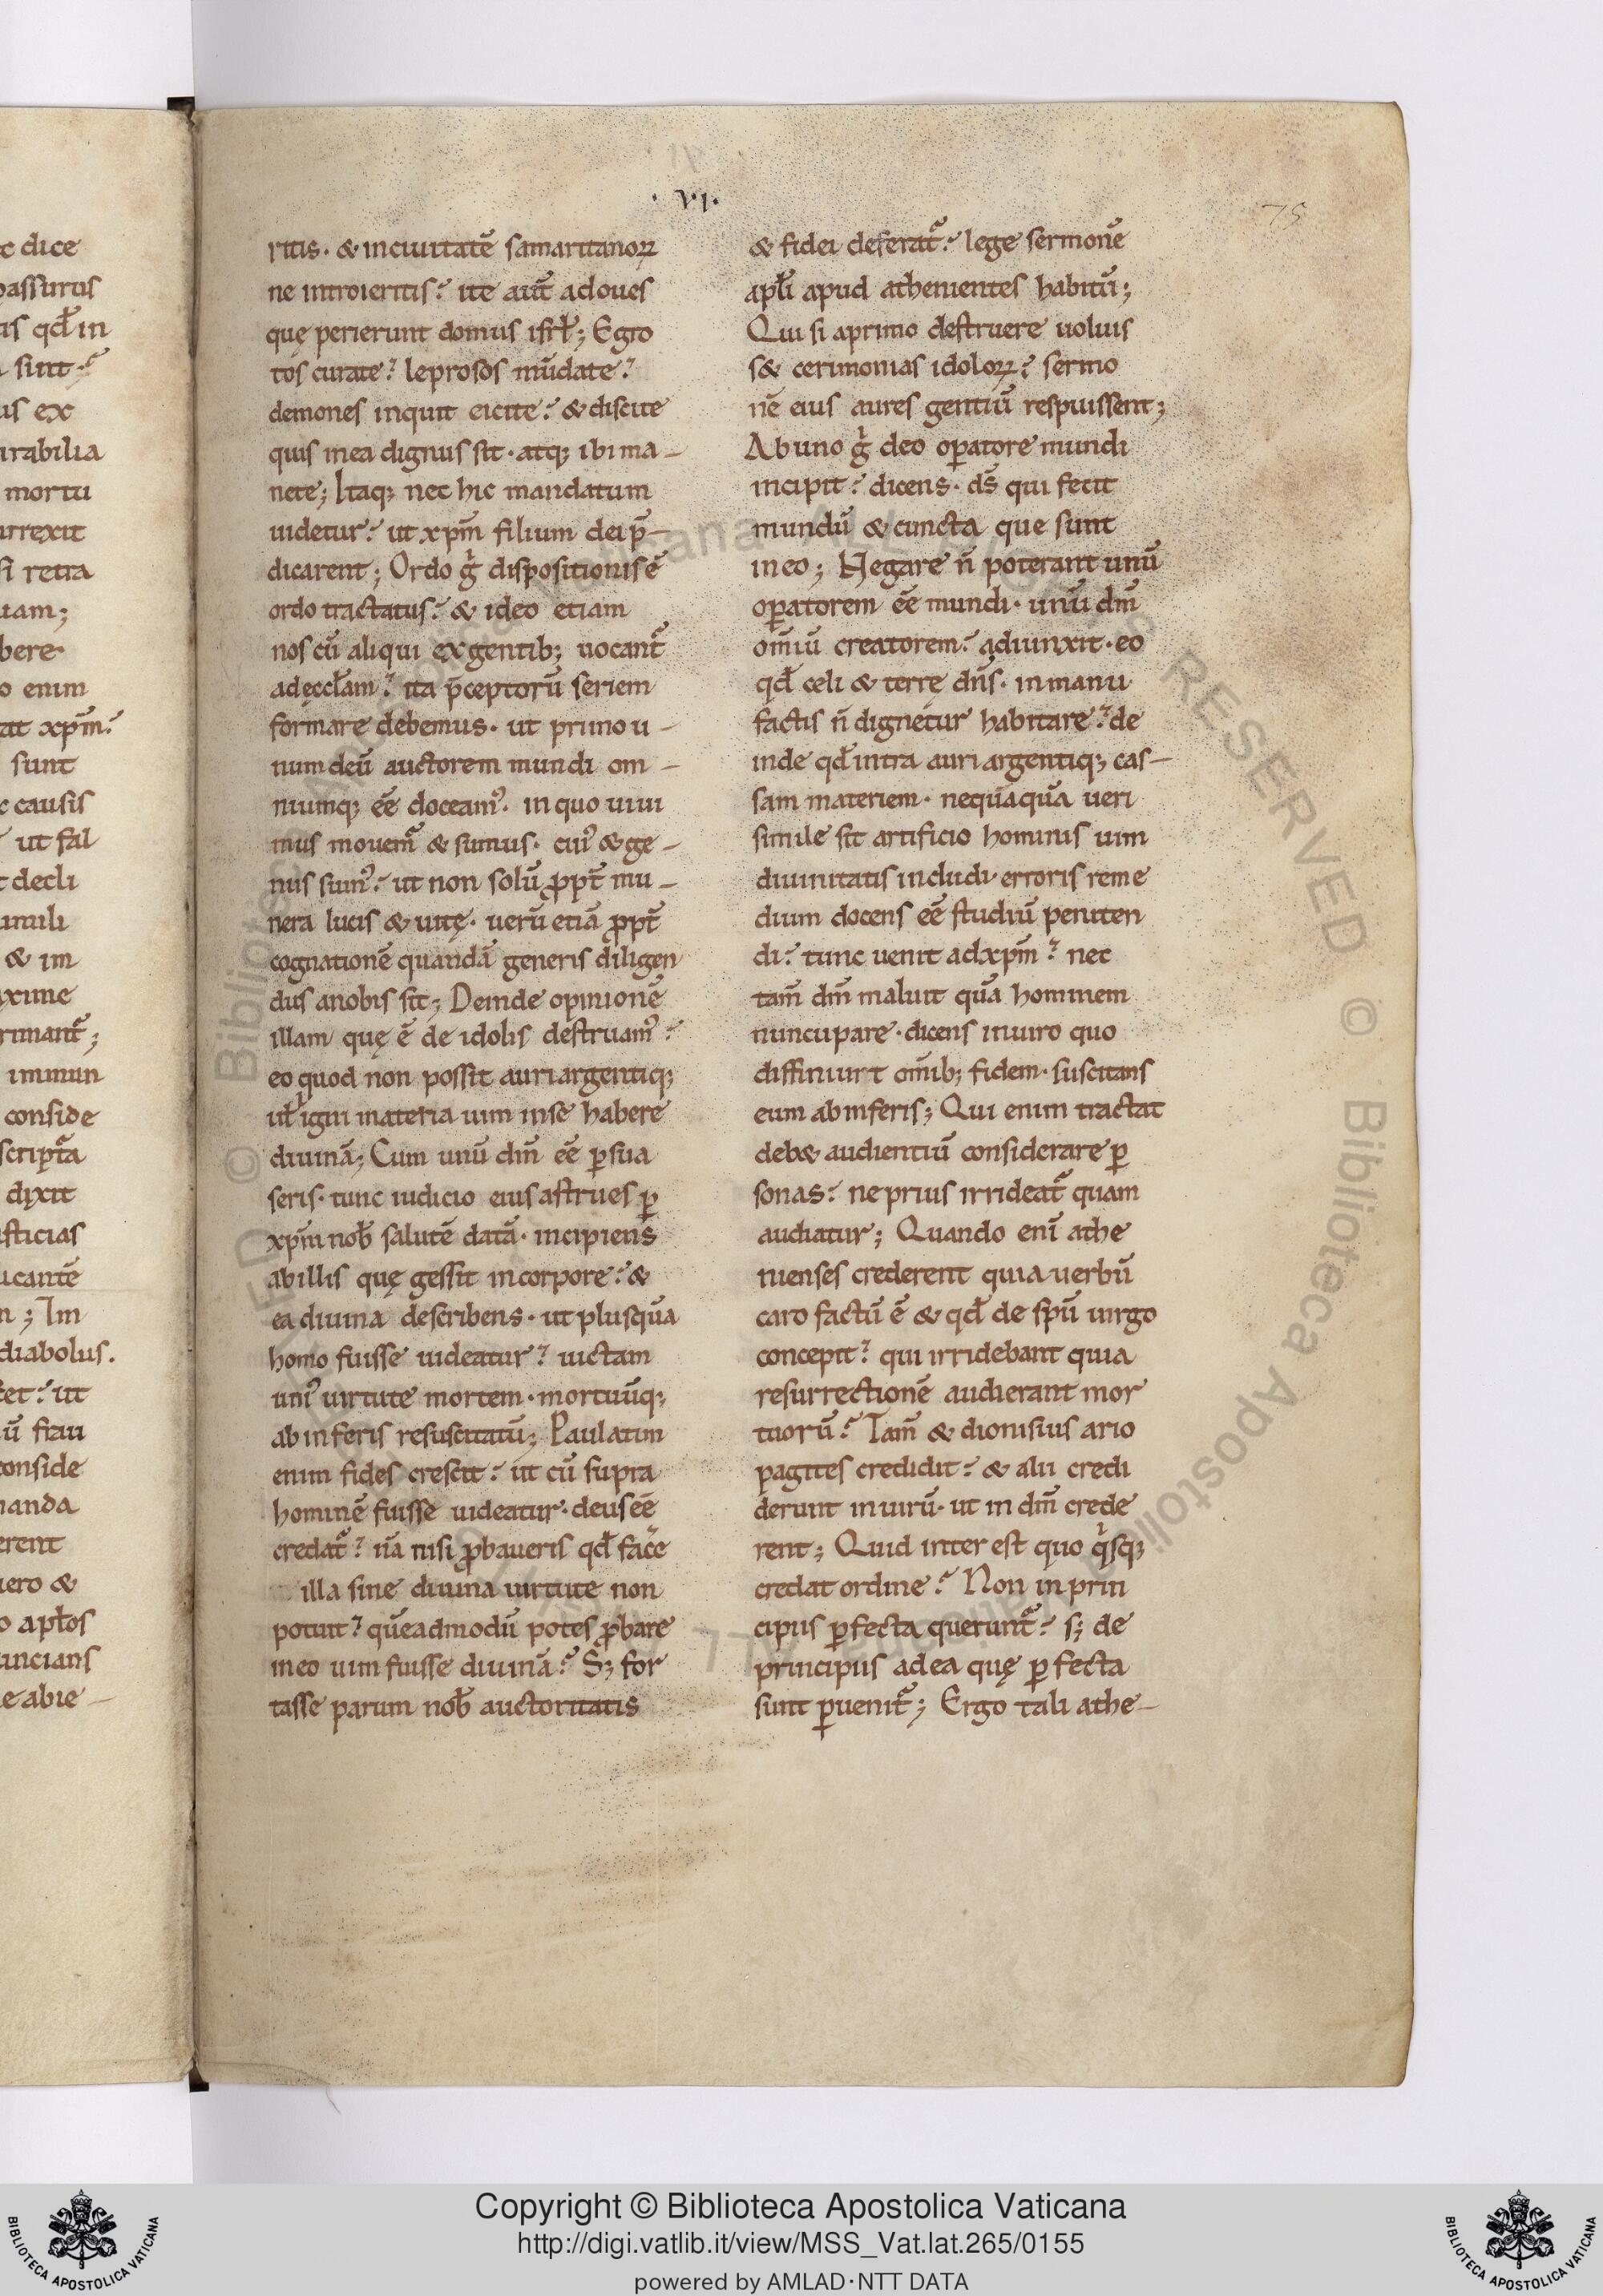 c dice
passurus
us qd̄ in
sunt
us ex
irabilia
mortu
urrexit
si retra
uam;
bere
o enim
at xp̄m
sunt
c causis
ut fal
t decli
imili
& im
xime
rimant᷑;
immun
conside
scriptā
dixit
sticias
ucantē
n; Im
diabolus.
et ut
ū frau
conside
manda
erent
uero &
o apl̄os
uncians
e abie-
· VI ·
75
ritis · & in ciuitatē samaritanoꝝ
ne introieritis? ite aut̄ ad oues
quę perierunt domus isrl̄; Egro
tos curate? leprosos mūdate?
demones inquit eicite? & discite
quis in ea dignus sit · atq; ibi ma-
nete; Itaq; nec hic mandatum
uidetur? ut xp̄m filium dei p̄-
dicarent; Ordo g̊ dispositionis ē
ordo tractatus? & ideo etiam
nos cū aliqui ex gentib; uocant᷑
ad ęccl̄am? ita p̄ceptorū seriem
formare debemus · ut primo u-
num deū auctorem mundi om-
niumq; ēē doceam᷒ · in quo uiui
mus mouem᷑ & sumus · cui᷒ & ge-
nus sum᷒? ut non solū ꝓpt̄ mu-
nera lucis & uitę · uerū etiā ꝓpt̄
cognationē quandā generis diligen
dus a nobis sit; Deinde opinionē
illam quę ē de idolis destruam᷒?
eo quod non possit auri argentiq;
ul̄ igni materia uim in se habere
diuinā; Cum unū dm̄ ēē ꝑsua
seris · tunc iudicio eius astrues ꝑ
xp̄m nob̄ salutē datā · incipiens
ab illis quę gessit in corpore? &
ea diuina describens · ut plusquā
homo fuisse uideatur? uictam
uni᷒ uirtute mortem · mortuūq;
ab inferis resuscitatū; Paulatim
enim fides crescit? ut cū supra
hominē fuisse uideatur · deus ēē
credat᷑? nā nisi ꝓbaueris qd̄ facē
illa sine diuina uirtute non
potuit? quēadmodū potes ꝓbare
in eo uim fuisse diuinā? S; for
tasse parum nob̄ auctoritatis
& fidei deferat᷑? lege sermonē
apl̄i apud athenientes habitū;
Qui si a primo destruere uoluis
s& cerimonias idoloꝝ? sermo
nē eius aures gentiū respuissent;
Ab uno g̊ deo oꝑatore mundi
incipit? dicens · ds̄ qui fecit
mundū & cuncta que sunt
in eo; Negare n̄ poterant unū
oꝑatorem ēē mundi · unū dm̄
om̄iū creatorem? adiunxit · eo
qd̄ celi & terrę dn̄s · in manu
factis n̄ dignetur habitare? de
inde qd̄ intra auri argentiq; cas-
sam materiem · nequaquā ueri
simile sit artificio hominis uim
diuinitatis includi · erroris reme
dium docens ēē studiū peniten
di? tunc uenit ad xp̄m? nec
tam̄ dm̄ maluit quā hominem
nuncupare · dicens in uiro quo
diffiniuit om̄ib; fidem · suscitans
eum ab inferis; Qui enim tractat
deb& audientiū considerare ꝑ
sonas? ne prius irrideat᷑ quam
audiatur; Quando enī athe
nienses crederent quia uerbū
caro factū ē & qd̄ de spū uirgo
concepit? qui irridebant quia
resurrectionē audierant mor
tuorū? Tam̄ & dionisius ario
pagites credidit? & alii credi
derunt in uirū · ut in dm̄ crede
rent; Quid inter est quo qͥsq;
credat ordine? Non in prin
cipiis ꝑfecta querunt᷑? s; de
principiis ad ea quę ꝑfecta
sunt ꝑuenit᷑; Ergo tali athe-
Copyright © Biblioteca Apostolica Vaticana
http://digi.vatlib.it/view/MSS_Vat.lat.265/0155
powered by AMLAD·NTT DATA